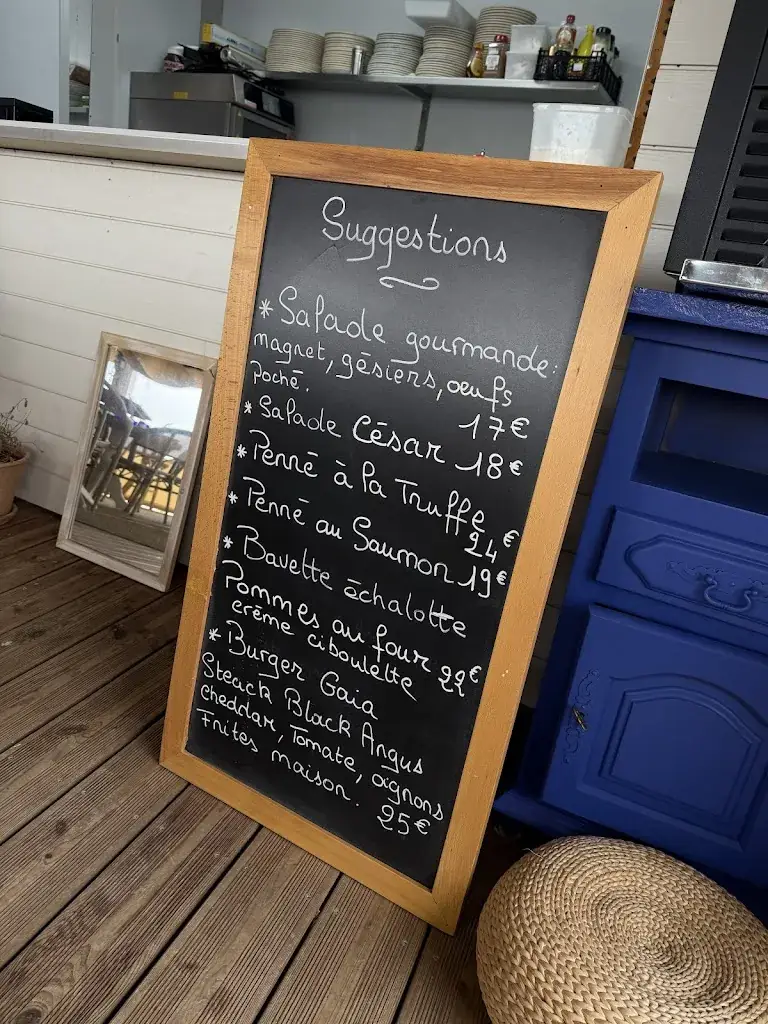 Suggestions
* Salade gourmande:
magret, gésiers, oeufs
Poché.
17€
* Salade César 18€
* Penné à la Truffe
24€
* Penné au Saumon 19€
* Bavette échalotte
Pommes au four 22€
crème ciboulette
* Burger Gaia
Steack Black Angus
cheddar, Tomate, oignons
Frites maison.
25€